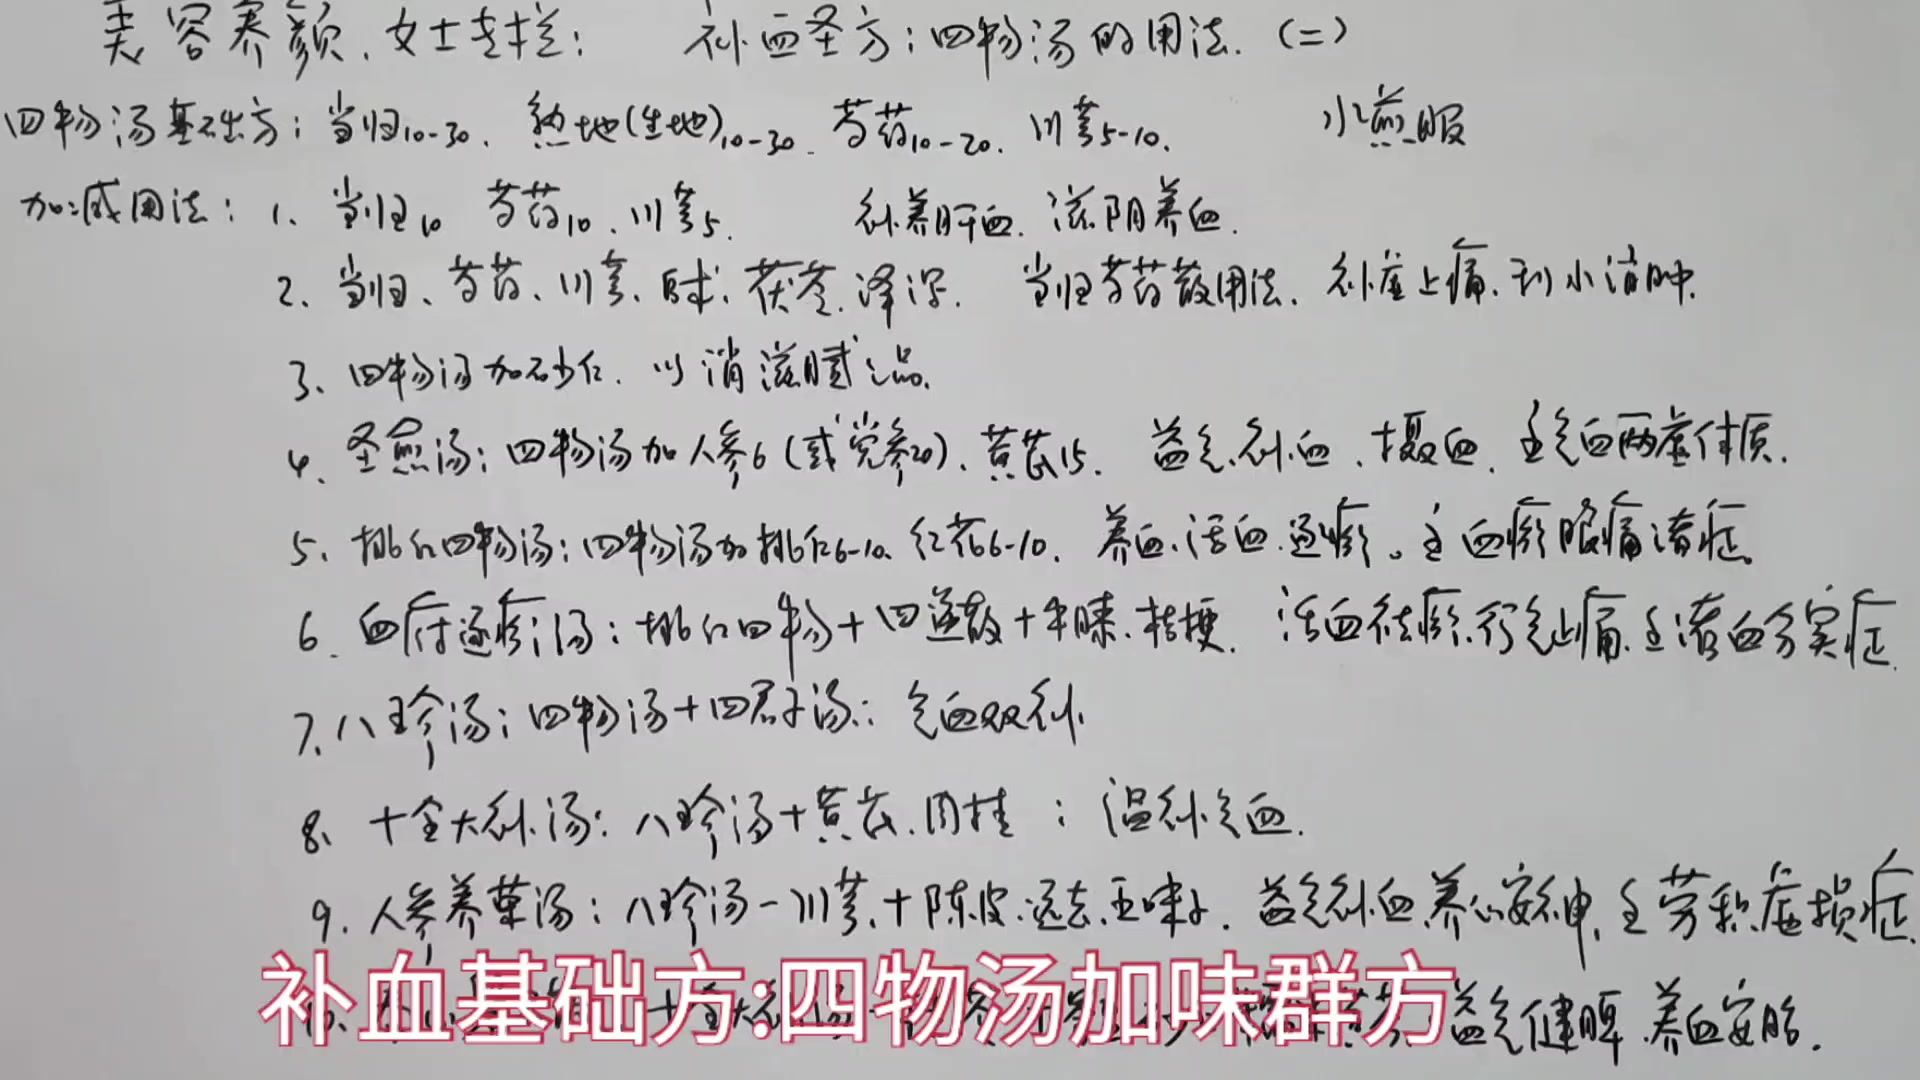 美容养颜.女士专栏: 补血圣方:四物汤的用法.(二)
四物汤基础方:当归10-30.熟地(生地)10-30.芍药10-20.川芎5-10. 水煎服
加减用法:1、当归10 芍药10.川芎5. 补养肝血.滋阴养血.
2、当归、芍药、川芎、白术.茯苓.泽泻. 当归芍药散用法.补虚止痛.利水消肿.
3、四物汤加砂仁.以消滋腻之品.
4、圣愈汤:四物汤加人参6(或党参20)、黄芪15. 益气.补血、摄血.主气血两虚体质.
5、桃红四物汤:四物汤加桃仁6-10.红花6-10. 养血.活血.逐瘀。主血瘀眼痛诸症。
6.血府逐瘀汤:桃红四物+四逆散+牛膝.桔梗. 活血祛瘀.行气止痛.主诸血分实症.
7.八珍汤:四物汤+四君子汤: 气血双补.
8、十全大补汤:八珍汤+黄芪.肉桂:温补气血.
9.人参养荣汤:八珍汤-川芎.+陈皮.远志.五味子.益气补血.养心安神.主劳积虚损症.
益气健脾.养血安胎.
补血基础方:四物汤加味群方